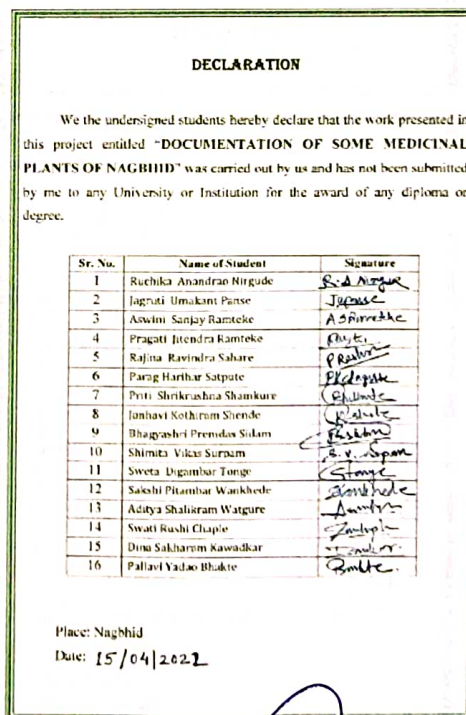 DECLARATION
We the undersigned students hereby declare that the work presented in
this project entitled "DOCUMENTATION OF SOME MEDICINAL
PLANTS OF NAGBHID" was carried out by us and has not been submitted
by me to any University or Institution for the award of any diploma or
degree.
Sr. No. Name of Student Signature
1 Ruchika Anandrao Nirgude R.A Nirgude
2 Jagruti Umakant Panse
3 Aswini Sanjay Ramteke
4 Pragati Jitendra Ramteke
5 Rajina Ravindra Sahare
6 Parag Harihar Satpute
7 Priti Shrikrushna Shamkure
8 Jonhavi Kothiram Shende
9 Bhagyashri Premdas Sidam
10 Shimita Vikas Surpam
11 Sweta Digambar Tonge
12 Sakshi Pitambar Wankhede
13 Aditya Shalikram Watgure
14 Swati Rushi Chaple
15 Dina Sakharam Kawadkar
16 Pallavi Yadao Bhakte
Place: Nagbhid
Date: 15/04/2022